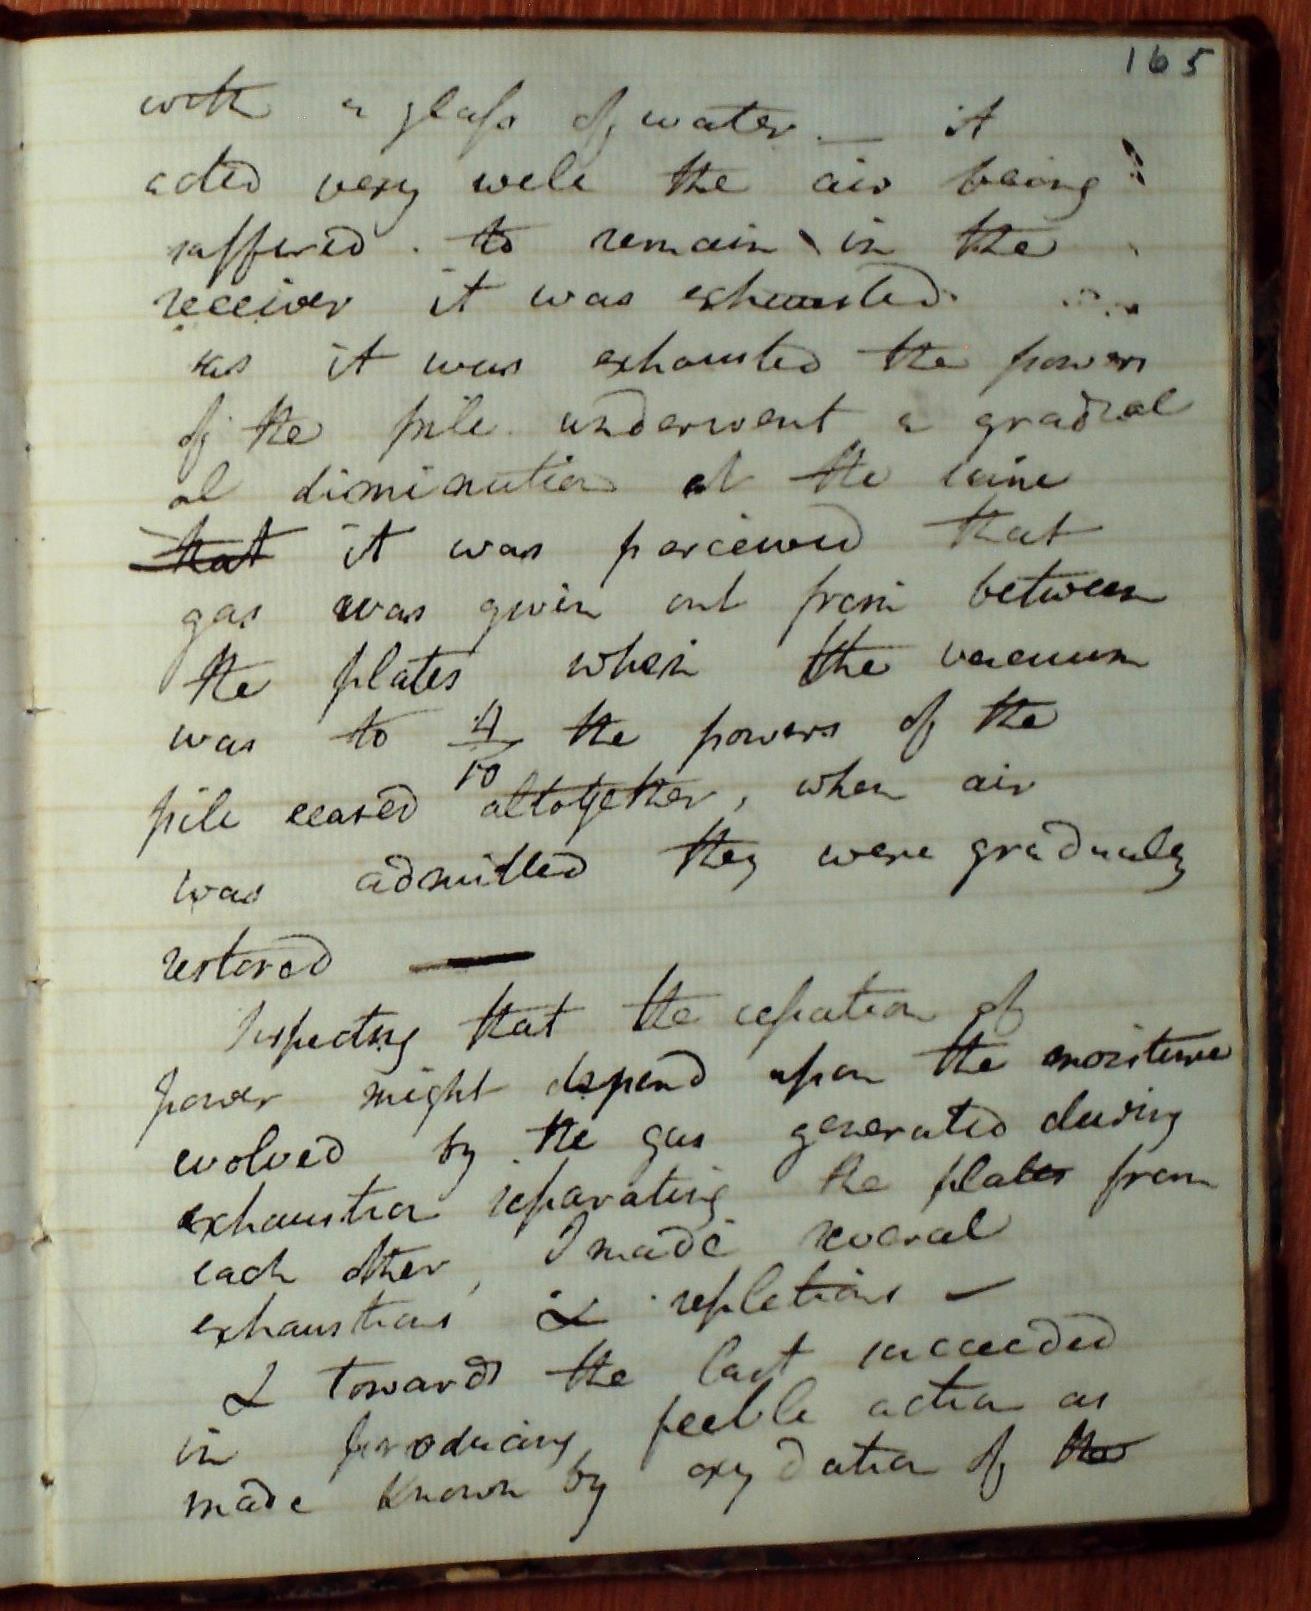 165
with a glass of water. — it
acted very well the air being
suffered to remain in the
receiver it was exhausted
as it was exhausted the powers
of the pile underwent a gradual
al diminution at the time
that it was perceived that
gas was given out from between
the plates when the vacuum
was to 4/10 the powers of the
pile ceased altogether, when air
was admitted they were gradualy
restored —
Suspecting that the cessation of
power might depend upon the moisture
evolved by the gas generated during
exhaustion separating the plates from
each other, I made several
exhaustions & repletions —
& towards the last succeeded
in producing feeble action as
made known by oxydation of the